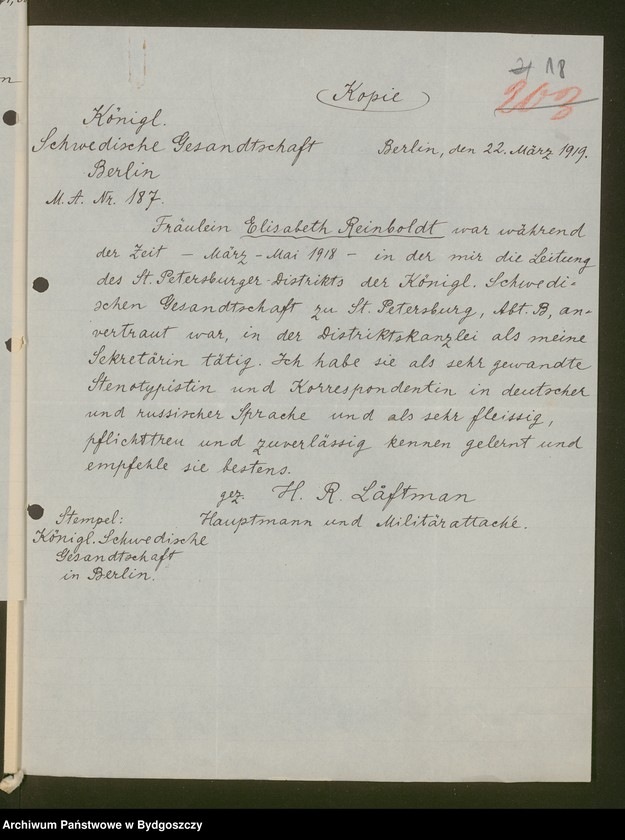 18
203
Kopie
Königl.
Schwedische Gesandtschaft
Berlin, den 22. März 1919.
Berlin
M. A. Nr. 187.
Fräulein Elisabeth Reinboldt war während
der Zeit – März – Mai 1918 – in der mir die Leitung
des St. Petersburger-Distrikts der Königl. Schwedi-
schen Gesandtschaft zu St. Petersburg, Abt. B, an-
vertraut war, in der Distriktskanzlei als meine
Sekretärin tätig. Ich habe sie als sehr gewandte
Stenotypistin und Korrespondentin in deutscher
und russischer Sprache und als sehr fleissig,
pflichttreu und zuverlässig kennen gelernt und
empfehle sie bestens.
gez. H. R. Låftman
Hauptmann und Militärattaché.
Stempel:
Königl. Schwedische
Gesandtschaft
in Berlin.
Archiwum Państwowe w Bydgoszczy